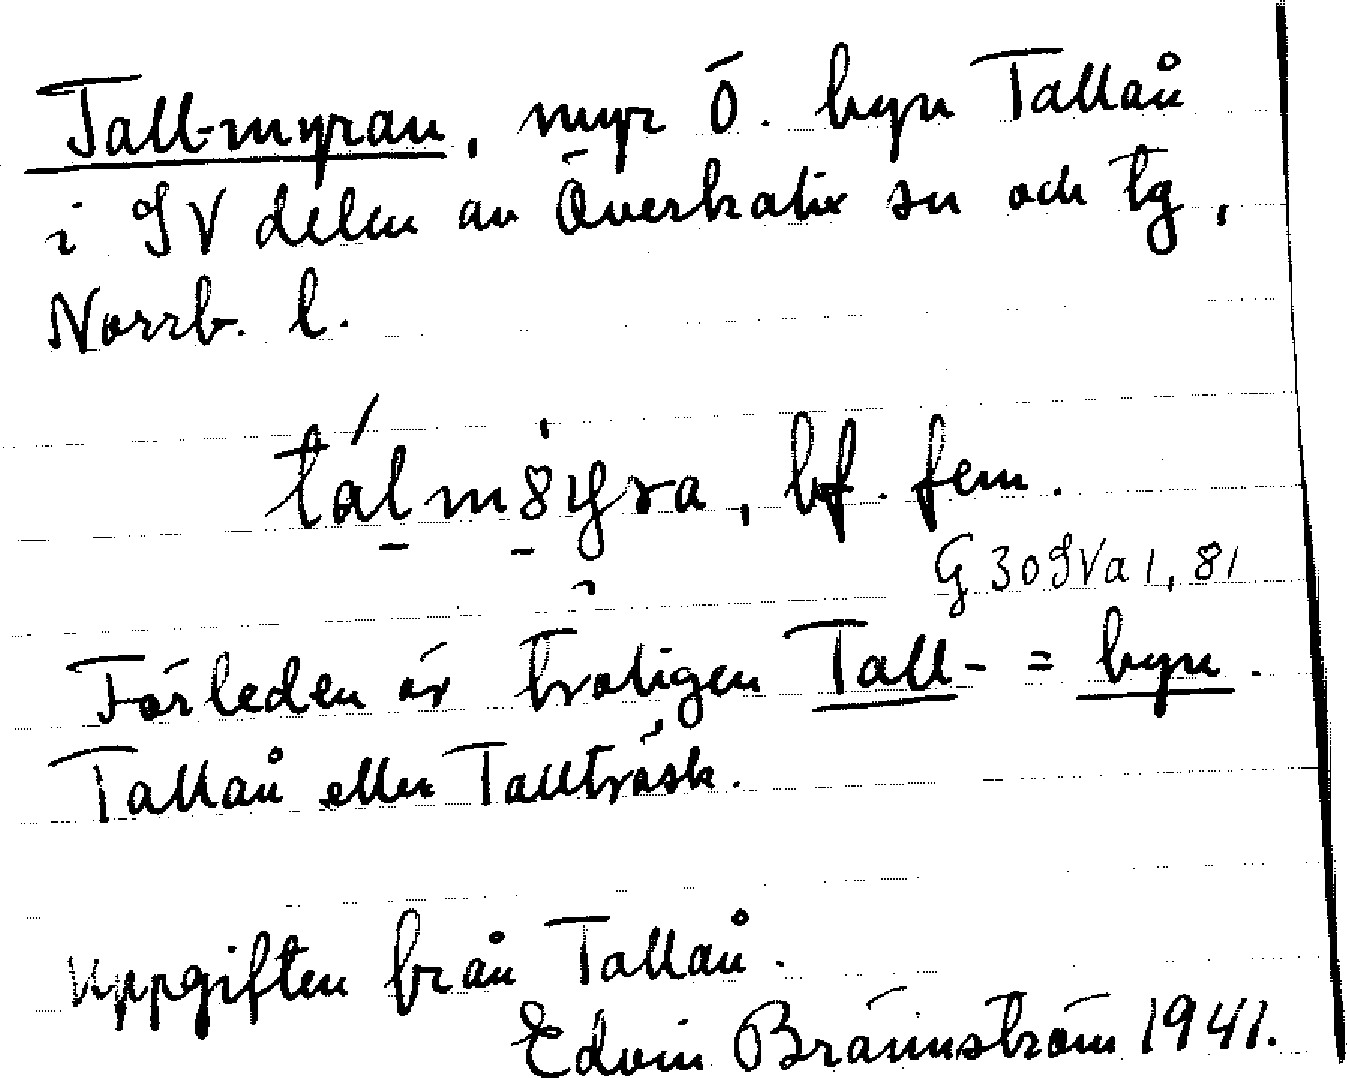 Tall-myran, myr Ö. byn Tallån
i SV delen av Överkalix sn och tg,
Norrb. l.
bf. fem.
G 30 SVa 1, 81
Förleden är troligen Tall- = byn.
Tallån eller Tallträsk.
Uppgiften från Tallån.
Edvin Brännström 1941.